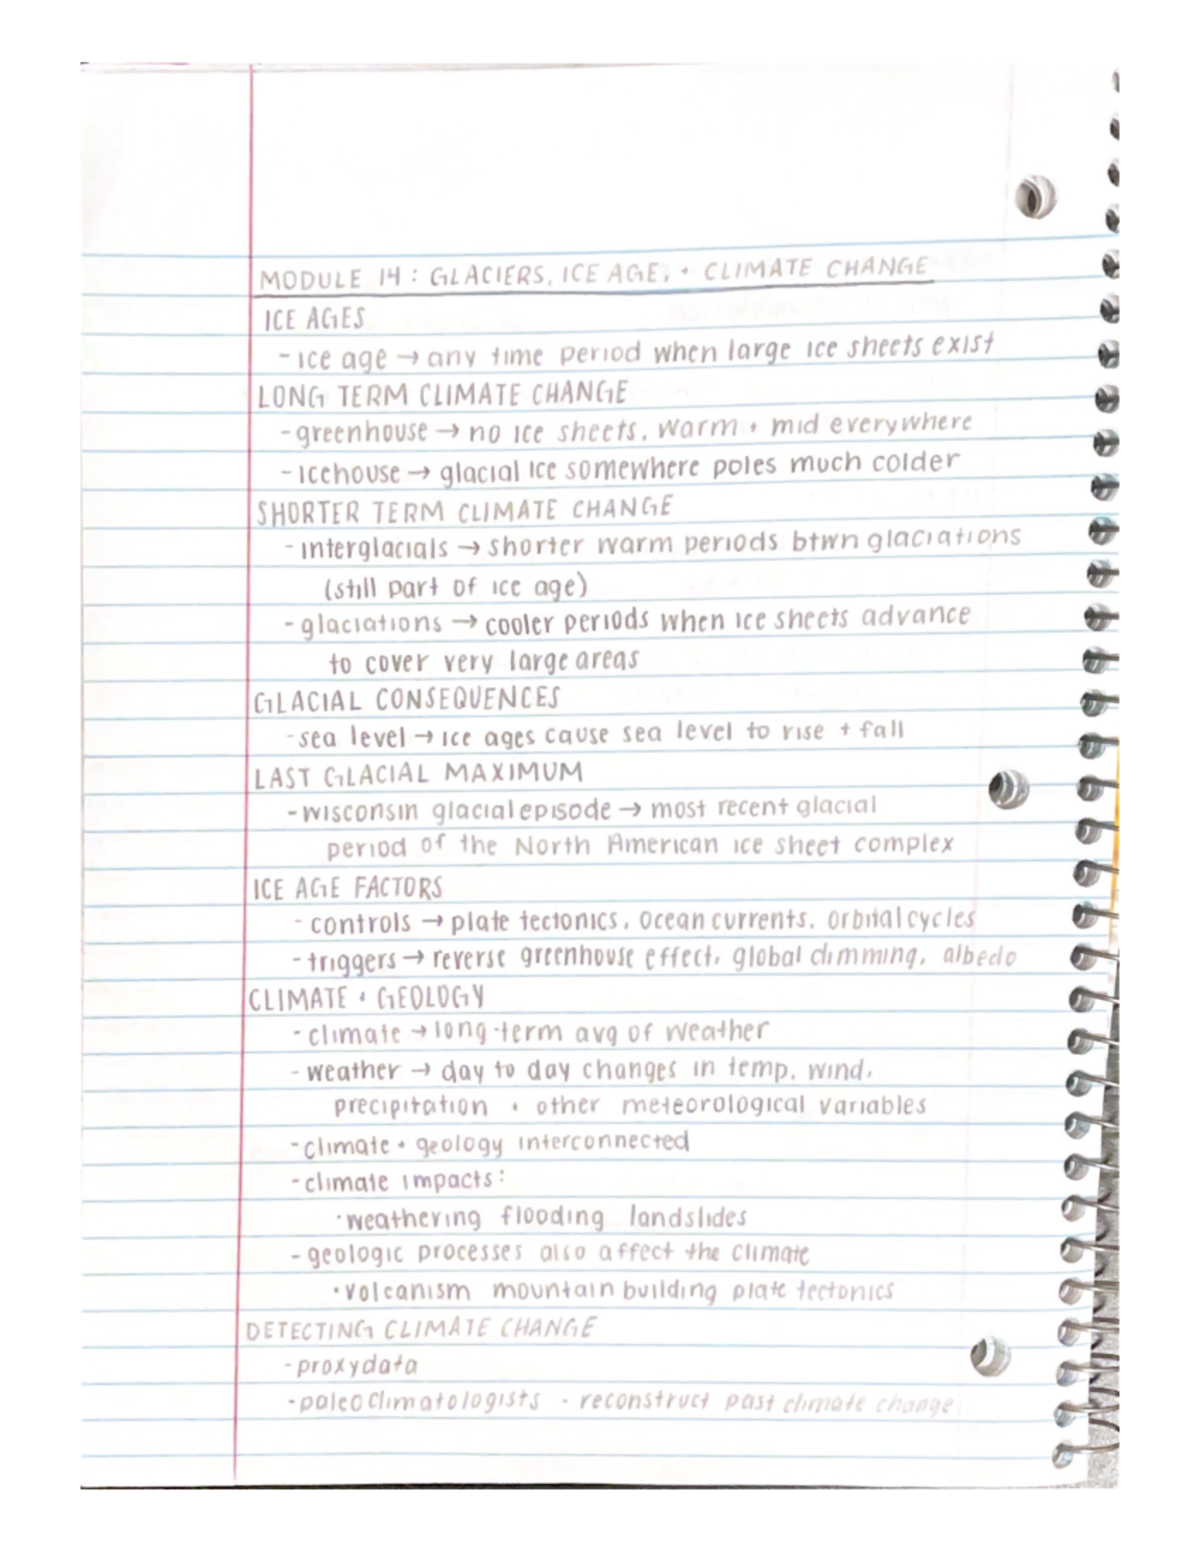 MODULE 14 : GLACIERS, ICE AGE, + CLIMATE CHANGE
ICE AGES
- ice age → any time period when large ice sheets exist
LONG TERM CLIMATE CHANGE
- greenhouse → no ice sheets, warm + mid everywhere
- icehouse → glacial ice somewhere poles much colder
SHORTER TERM CLIMATE CHANGE
- interglacials → shorter warm periods btwn glaciations
(still part of ice age)
- glaciations → cooler periods when ice sheets advance
to cover very large areas
GLACIAL CONSEQUENCES
- sea level → ice ages cause sea level to rise + fall
LAST GLACIAL MAXIMUM
- wisconsin glacial episode → most recent glacial
period of the North American ice sheet complex
ICE AGE FACTORS
- controls → plate tectonics, ocean currents, orbital cycles
- triggers → reverse greenhouse effect, global dimming, albedo
CLIMATE + GEOLOGY
- climate → long-term avg of weather
- weather → day to day changes in temp, wind,
precipitation + other meteorological variables
- climate + geology interconnected
- climate impacts:
· weathering flooding landslides
- geologic processes also affect the climate
· volcanism mountain building plate tectonics
DETECTING CLIMATE CHANGE
- proxy data
- paleoclimatologists - reconstruct past climate change